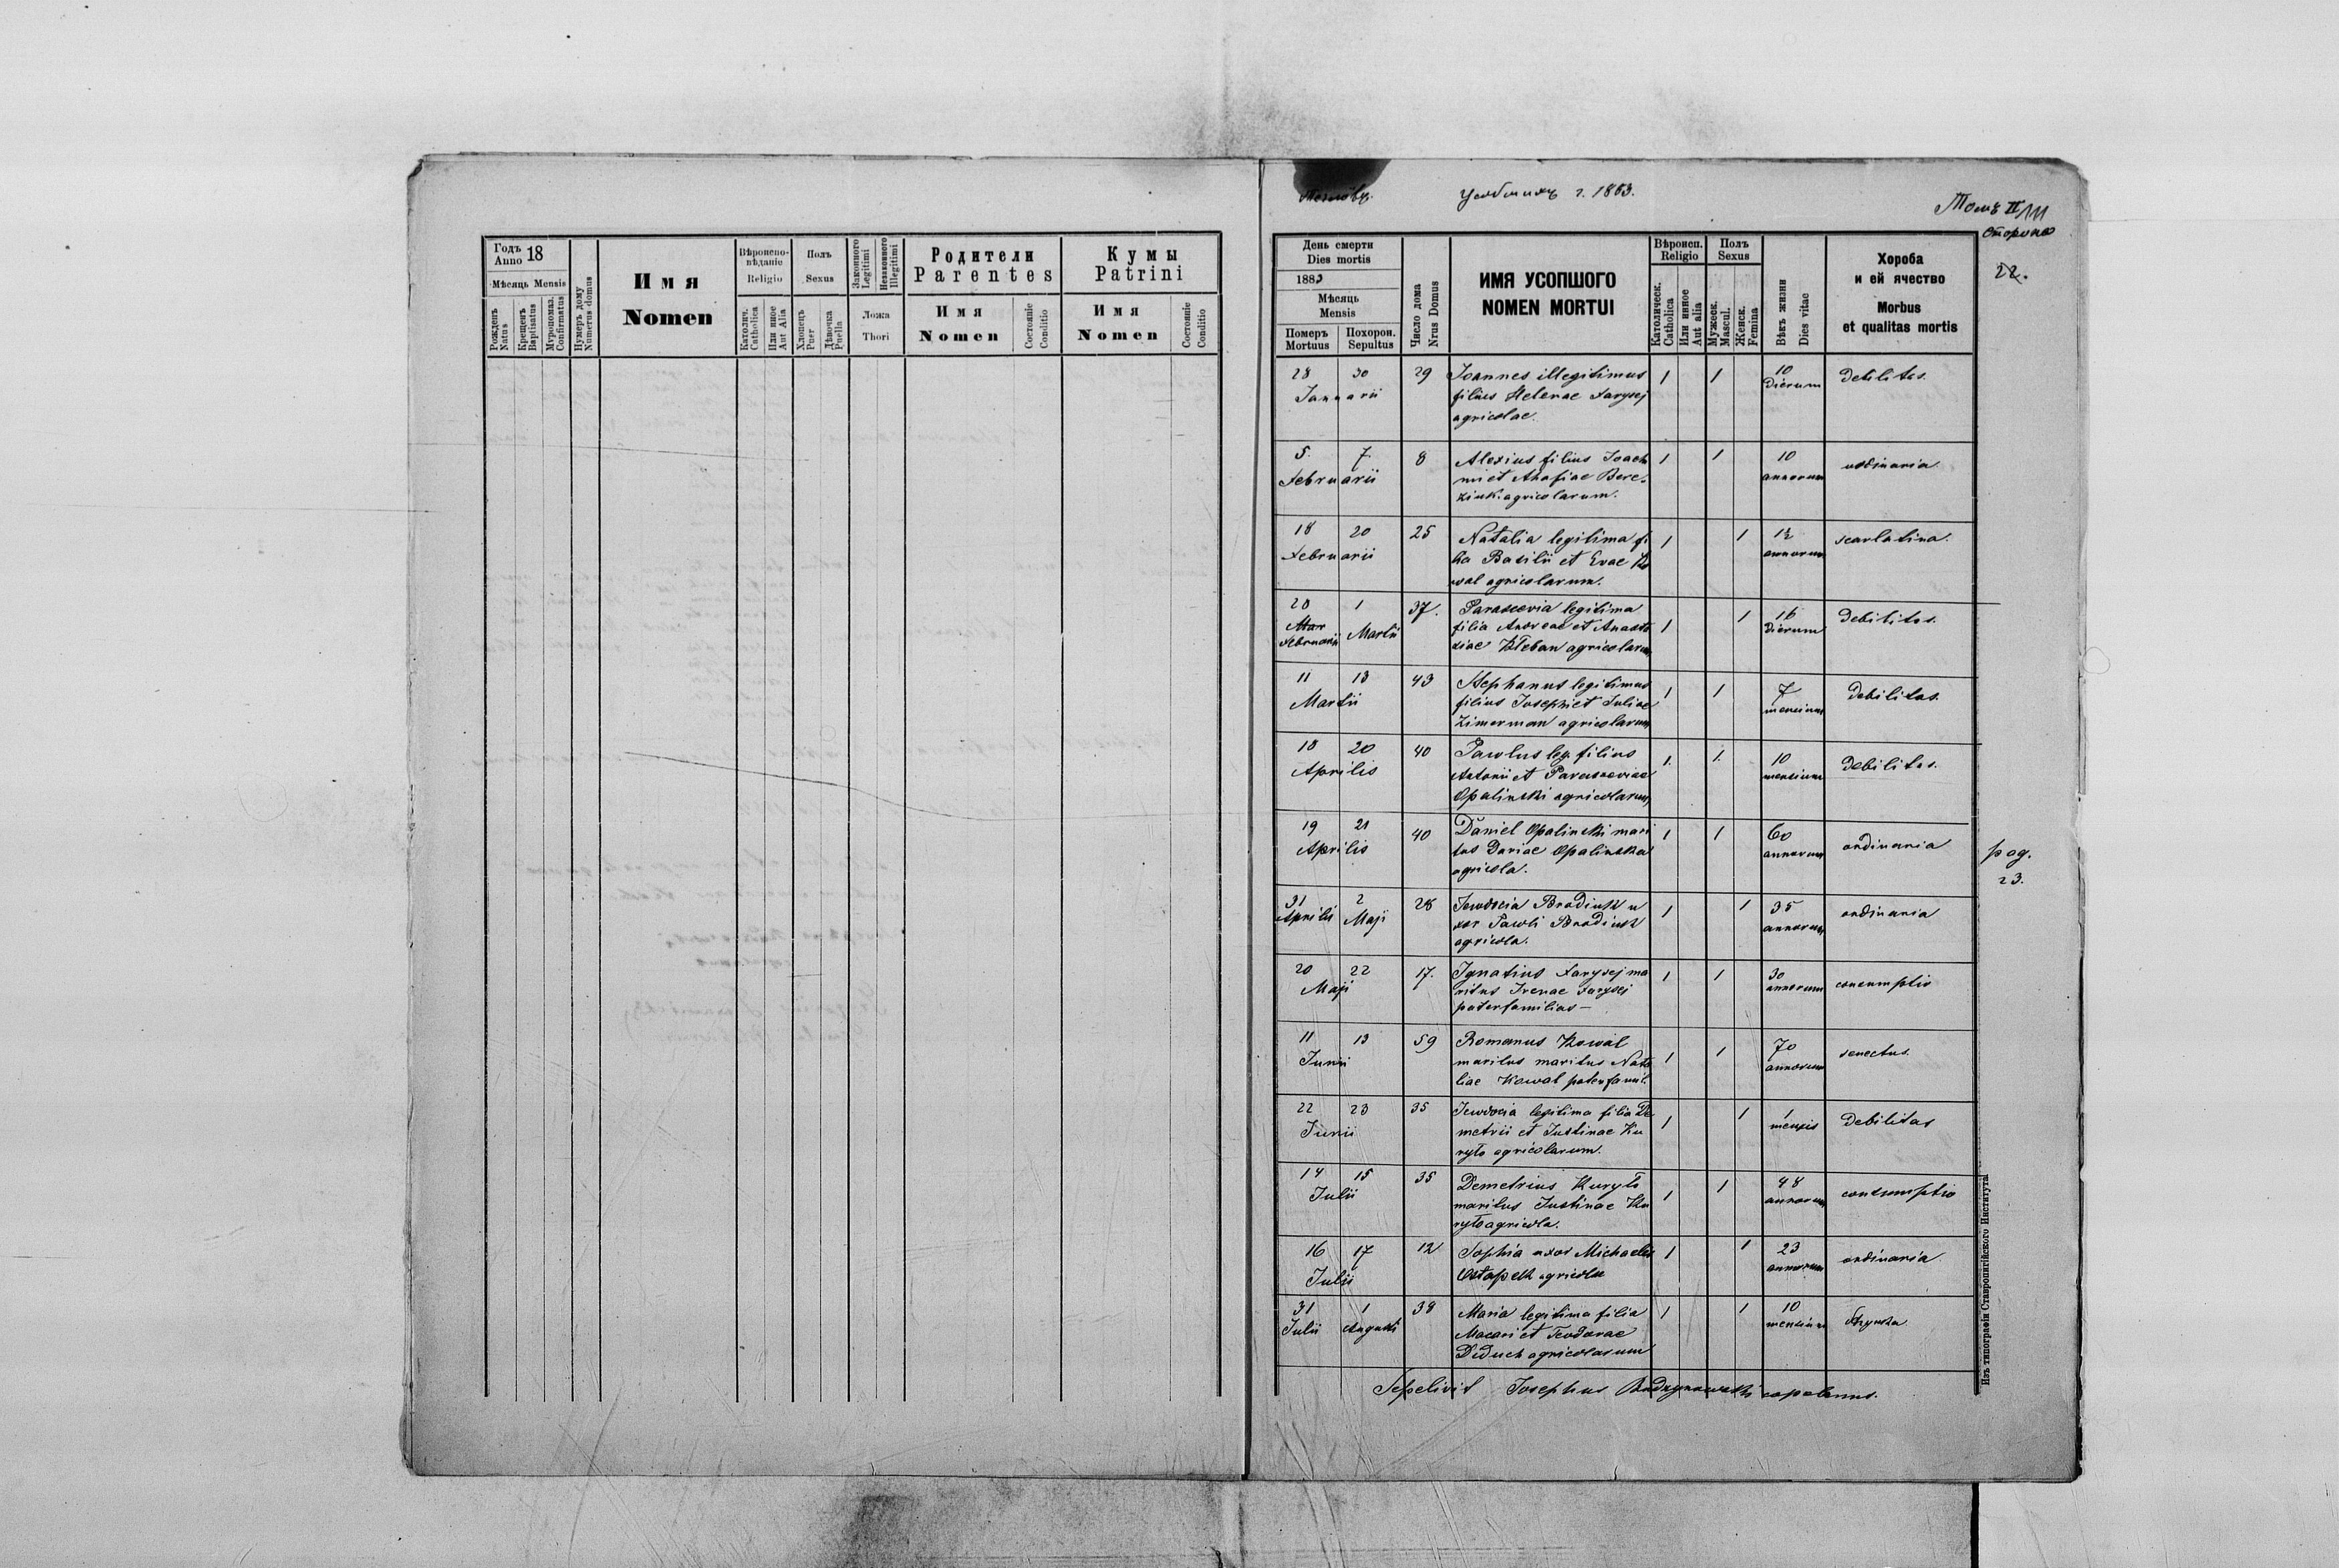 Усобшихъ г. 1883.
Томъ II/III
сторона
22.
Годъ 18
Anno
Мѣсяць Mensis
Рожденъ Natus
Крещенъ Baptisatus
Мѵропомаз. Confirmatus
Нумеръ дому Numerus domus
Имя
Nomen
Вѣроиспо-
вѣданіе
Religio
Католич. Catholica
Или иное Aut Alia
Полъ
Sexus
Хлопець Puer
Дѣвочка Puella
Законного Legitimi
Незаконного Illegitimi
Ложа
Thori
Родители
Parentes
Имя
Nomen
Состояніе Conditio
Кумы
Patrini
Имя
Nomen
Состояніе Conditio
День смерти
Dies mortis
1883
Мѣсяць
Mensis
Померъ Mortuus
Похорон. Sepultus
Число дома Nrus Domus
ИМЯ УСОПШОГО
NOMEN MORTUI
Вѣроисп.
Religio
Католическ. Catholica
Или инное Aut alia
Полъ
Sexus
Мужеск. Mascul.
Женск. Femina
Вѣкъ жизни Dies vitae
Хороба
и ей ячество
Morbus
et qualitas mortis
28 30 29 Joannes illegitimus 1 1 10 debilitas.
Januarii filius Helenae Farysej dierum
agricolae.
5. 7. 8 Alexius filius Joach 1 1 10 ordinaria
Februarii mi et Ahafiae Bere- annorum
ziuk agricolarum.
18 20 25 Natalia legitima fi 1 1 1½ scarlatina.
Februarii lia Basilii et Evae Ko annorum
wal agricolarum.
28 1 37. Parascevia legitima 1 1 16 debilitas.
Februarii Martii filia Andreae et Anasta dierum
siae Kleban agricolarum
11 13 43 Stephanus legitimus 1 1 7 debilitas.
Martii filius Josephi et Juliae mensium
Zimerman agricolarum
18 20 40 Pawlus leg. filius 1. 1. 10 debilitas.
Aprilis Antonii et Parasceviae mensium
Opalinski agricolarum
19 21 40 Daniel Opalinski mari 1 1 60 ordinaria
Aprilis tus Dariae Opalinska annorum
agricola.
pag.
23.
31 2 28 Jewdocia Bradiuk u 1 1 35 ordinaria
Aprilis Maji xor Pawli Bradiuk annorum
agricola.
20 22 17. Ignatius Farysej ma 1 1 30 consumptio
Maji ritus Irenae Farysej annorum
paterfamilias —
11 13 59 Romanus Kowal 1 1 70 senectus.
Junii maritus maritus Nata annorum
liae Kowal paterfamil.
22 23 35 Jewdocia legitima filia De 1 1 1 debilitas
Junii metrii et Justinae Ku mensis
ryło agricolarum.
14 15 35 Demetrius Kuryło 1 1 48 consumptio
Julii maritus Justinae Ku annorum
ryło agricola.
16 17 12 Sophia uxor Michaelis 1 1 23 ordinaria
Julii Ostapek agricolae annorum
31 1 38 Maria legitima filia 1 1 10
Julii Augusti Macari et Teodorae mensium
Diduch agricolarum
Sepelivit Josephus Budzynowski capelanus.
Изъ типографіи Ставропигійского Института